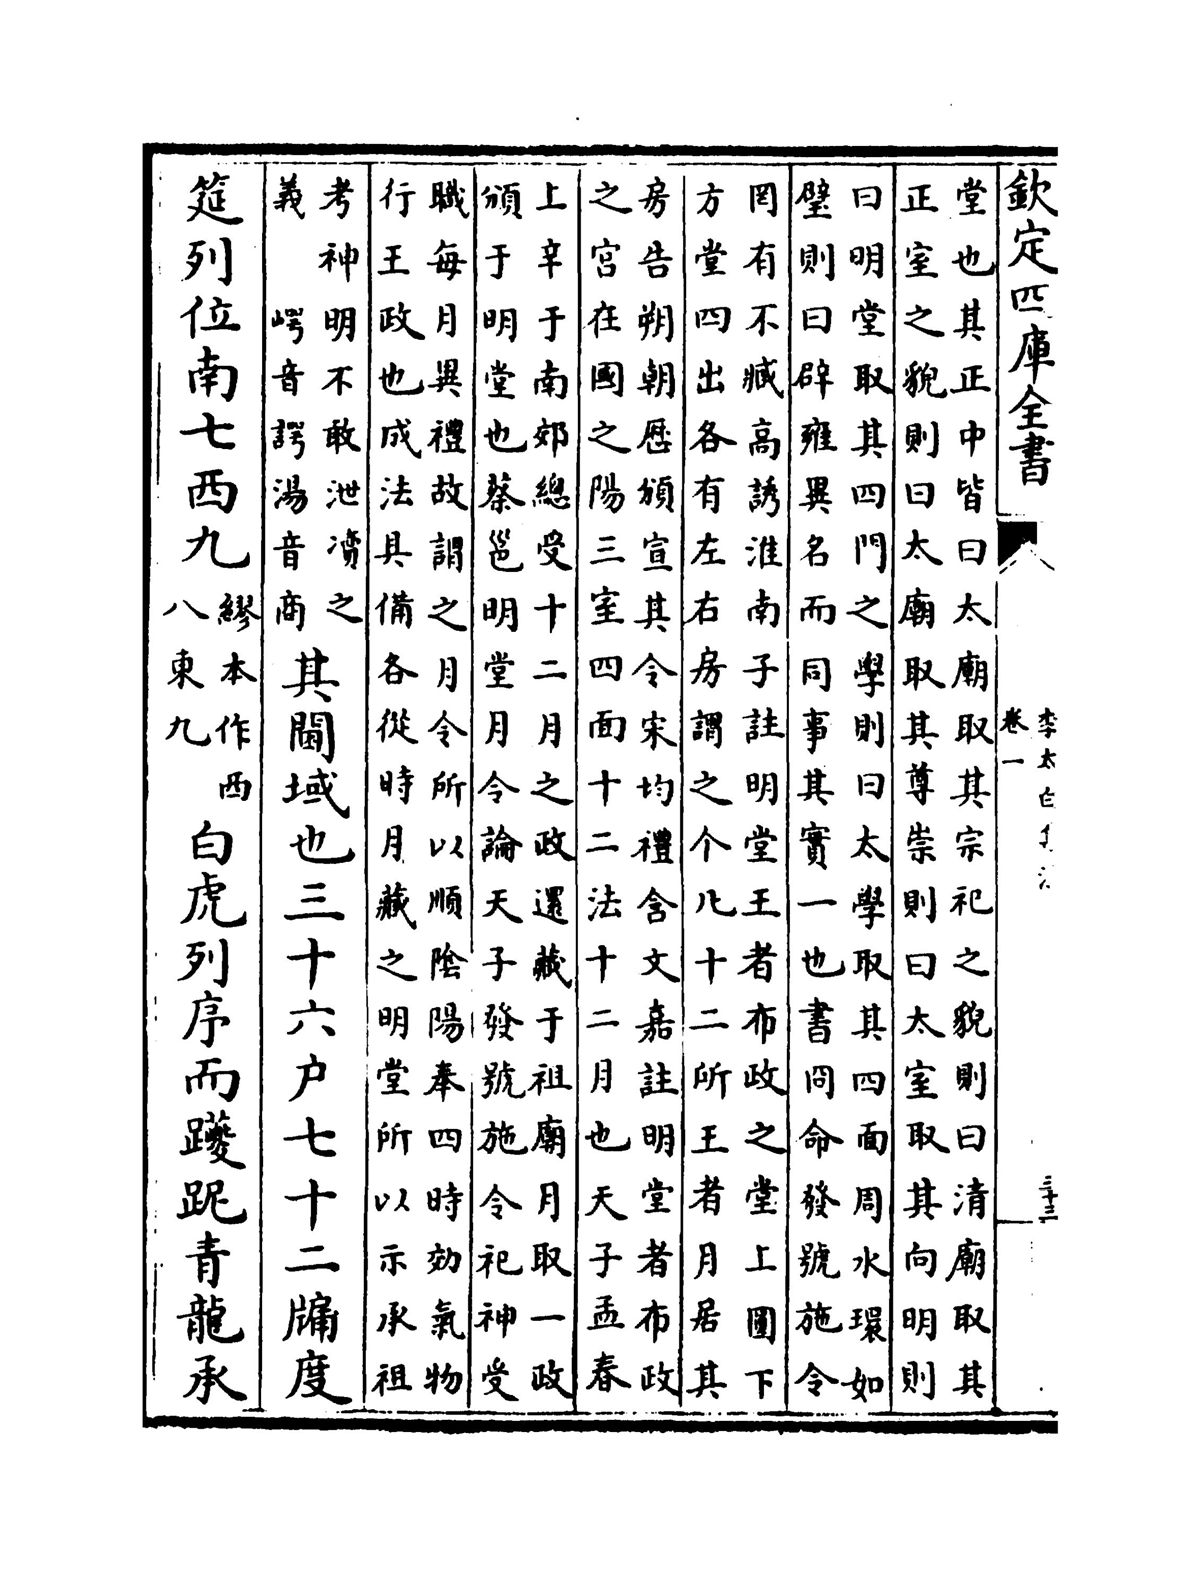 欽定四庫全書
李太白集注
卷一
三十三
堂也其正中皆曰太廟取其宗祀之貌則曰清廟取其
正室之貌則曰太廟取其尊崇則曰太室取其向明則
曰明堂取其四門之學則曰太學取其四面周水環如
璧則曰辟雍異名而同事其實一也書冏命發號施令
罔有不臧高誘淮南子註明堂王者布政之堂上圓下
方堂四出各有左右房謂之个凡十二所王者月居其
房告朔朝厯頒宣其令宋均禮含文嘉註明堂者布政
之宮在國之陽三室四面十二法十二月也天子孟春
上辛于南郊總受十二月之政還藏于祖廟月取一政
頒于明堂也蔡邕明堂月令論天子發號施令祀神受
職每月異禮故謂之月令所以順陰陽奉四時効氣物
行王政也成法具備各從時月藏之明堂所以示承祖
考神明不敢泄瀆之
義 崿音諤湯音商
其閫域也三十六户七十二牖度
筵列位南七西九
繆本作西
八東九
白虎列序而躨跜青龍承